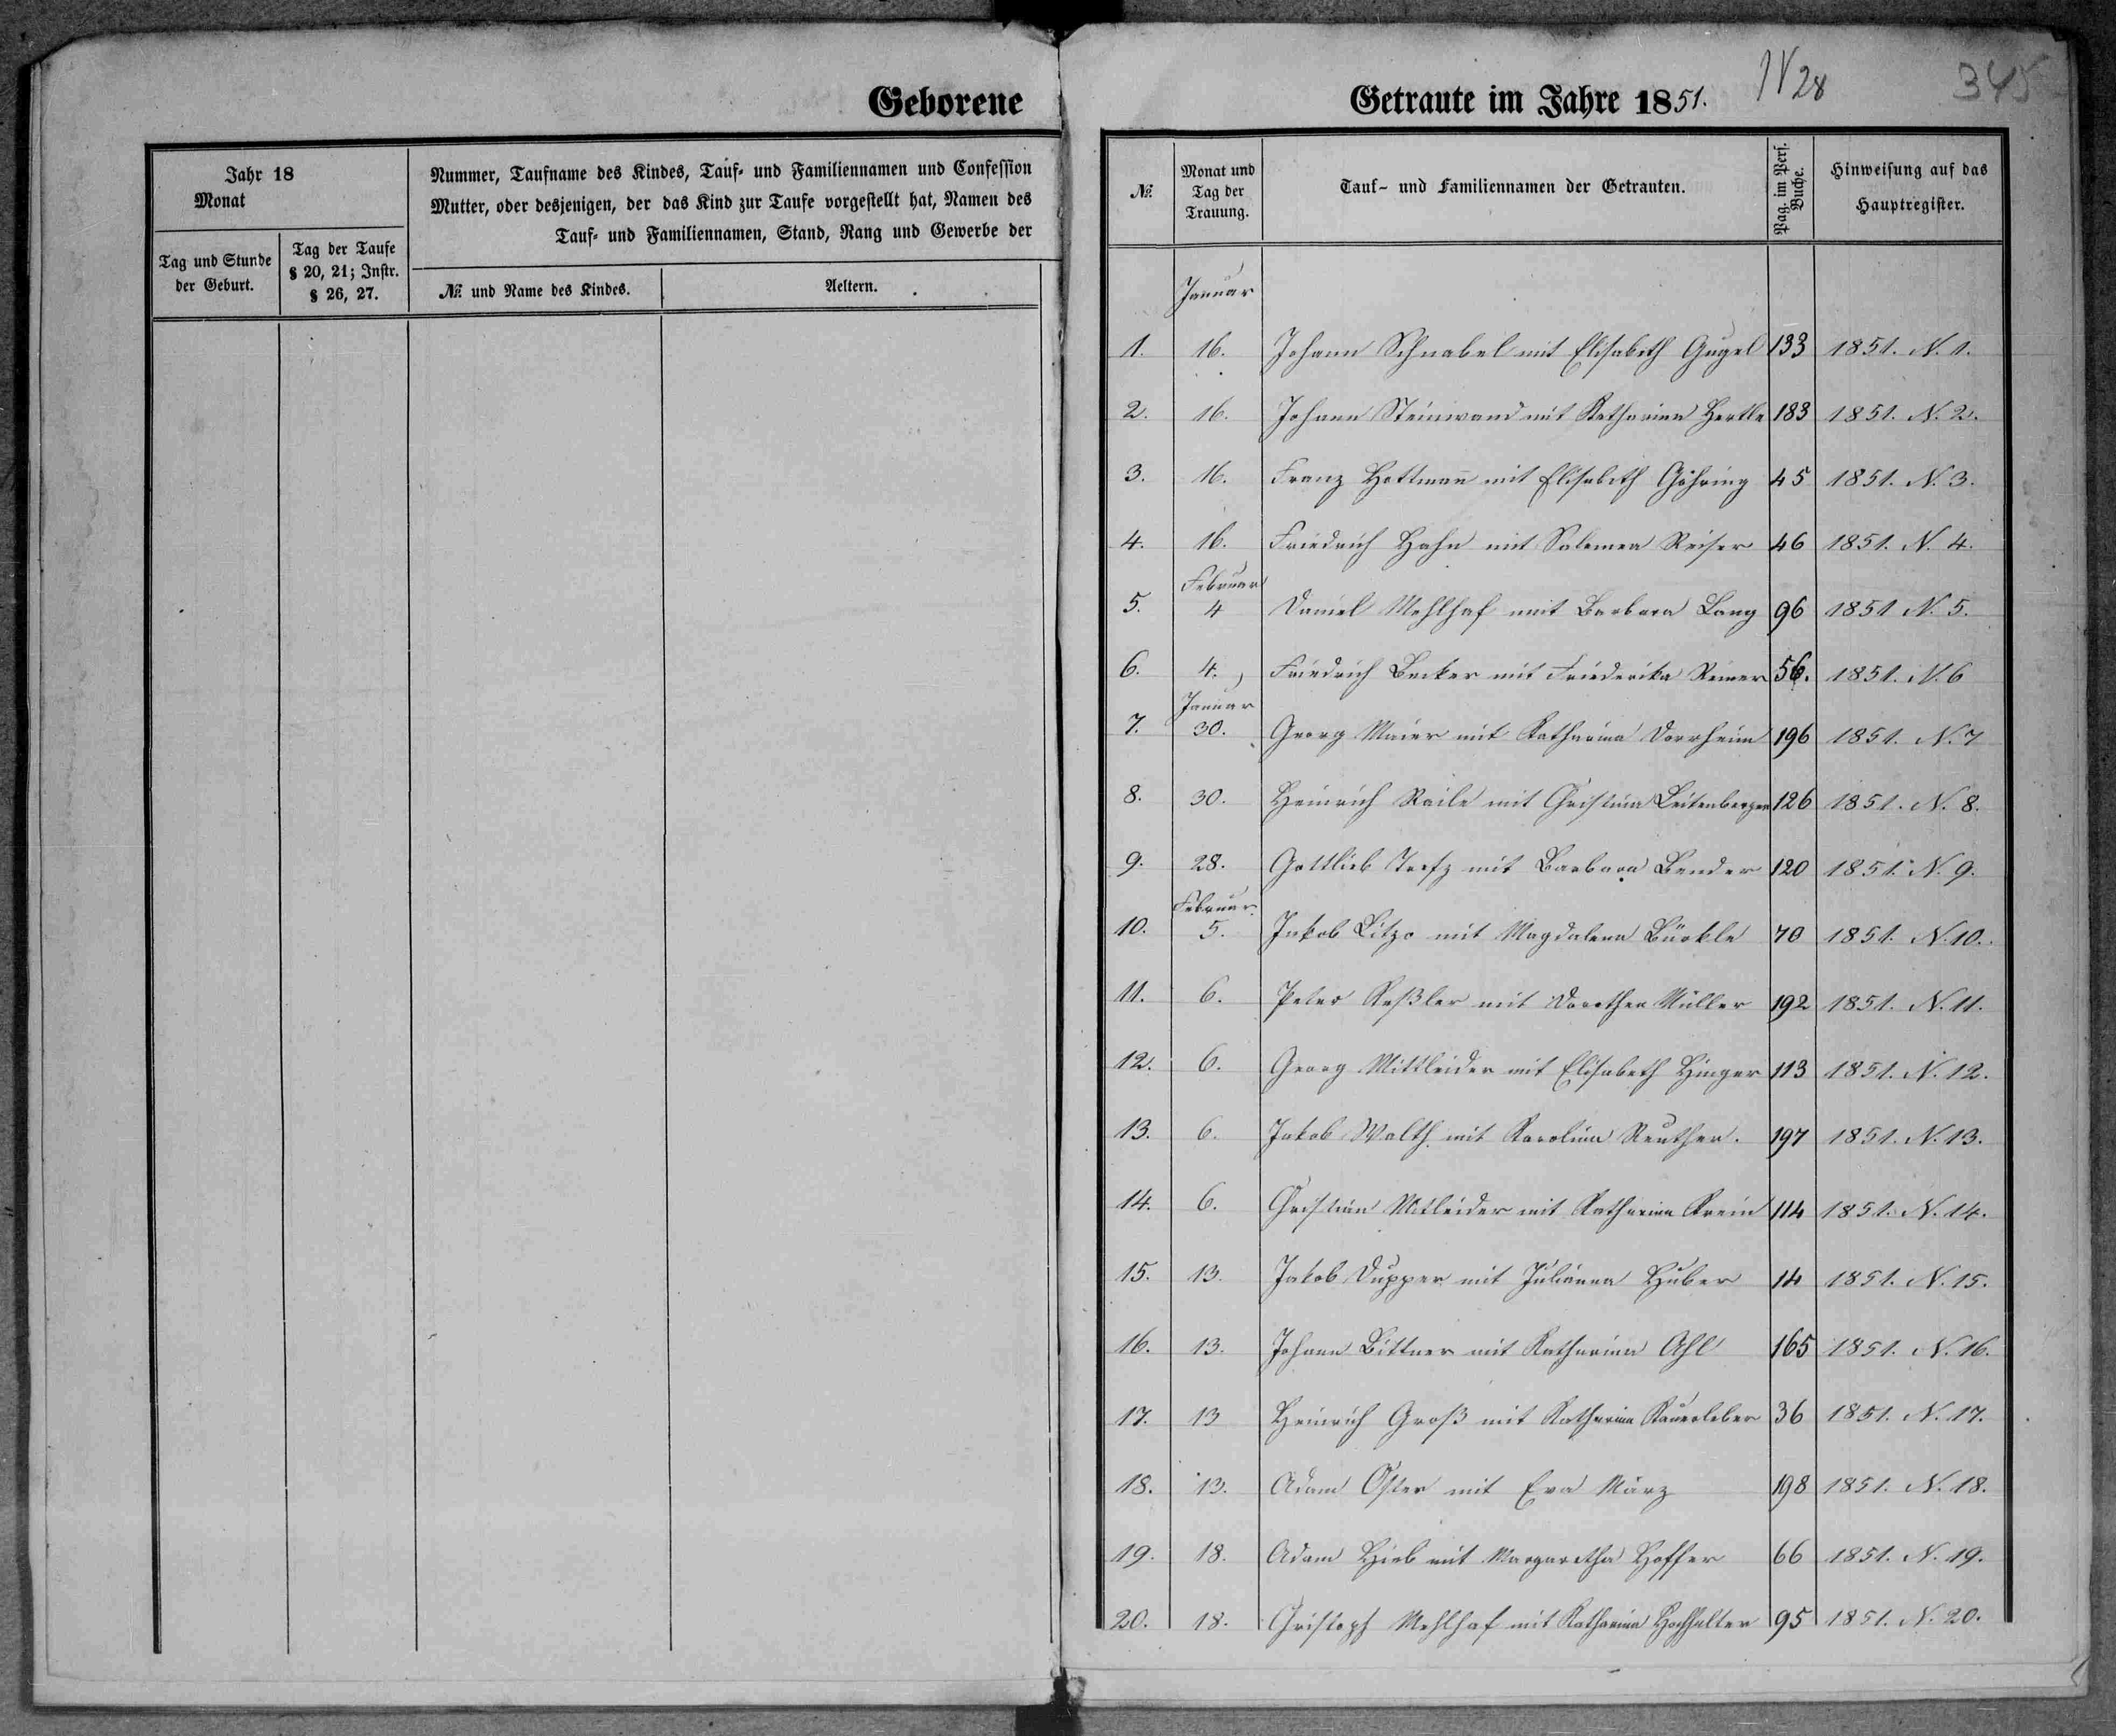 Geborene
Jahr 18
Monat
Tag und Stunde
der Geburt.
Tag der Taufe
§ 20, 21; Instr.
§ 26, 27.
Nummer, Taufname des Kindes, Tauf- und Familiennamen und Confession
Mutter, oder desjenigen, der das Kind zur Taufe vorgestellt hat, Namen des
Tauf- und Familiennamen, Stand, Rang und Gewerbe der
№ und Name des Kindes.
Aeltern.
Getraute im Jahre 1851.
N 28
345
№
Monat und
Tag der
Trauung.
Tauf- und Familiennamen der Getrauten.
Pag. im Pers.
Buche.
Hinweisung auf das
Hauptregister.
Januar
1. 16. Johann Schnabel mit Elisabeth Gugel 133 1851. N. 1.
2. 16. Johann Steinwand mit Katharina Hertle 183 1851. N. 2.
3. 16. Franz Hottmañ mit Elisabeth Göhring 45 1851. N. 3.
4. 16. Friedrich Hahn mit Salomea Reiser 46 1851. N. 4.
Februar
5. 4 Daniel Mehlhaf mit Barbara Lang 96 1851 N. 5.
6. 4. Friedrich Becker mit Friederika Reimer 56. 1851. N. 6
Januar
7. 30. Georg Maier mit Katharina Dorrheim 196 1851. N. 7
8. 30. Heinrich Raile mit Christina Leitenberger 126 1851. N. 8.
9. 28. Gottlieb Trefz mit Barbara Bender 120 1851. N. 9.
Februar.
10. 5. Jakob Litzo mit Magdalena Bürkle 70 1851. N. 10.
11. 6. Peter Keßler mit Dorothea Müller 192 1851. N. 11.
12. 6. Georg Mittleider mit Elisabeth Hinger 113 1851. N. 12.
13. 6. Jakob Walth mit Karolina Reuther. 197 1851. N. 13.
14. 6. Christian Mitleider mit Katharina Krein 114 1851. N. 14.
15. 13. Jakob Dupper mit Julianna Huber 14 1851. N. 15.
16. 13. Johann Bittner mit Katharina Ahl 165 1851. N. 16.
17. 13 Heinrich Groß mit Katharina Sauerleber 36 1851. N. 17.
18. 13. Adam Oster mit Eva März 198 1851. N. 18.
19. 18. Adam Hieb mit Margaretha Hoffer 66 1851. N. 19.
20. 18. Christoph Mehlhaf mit Katharina Hochhalter 95 1851. N. 20.